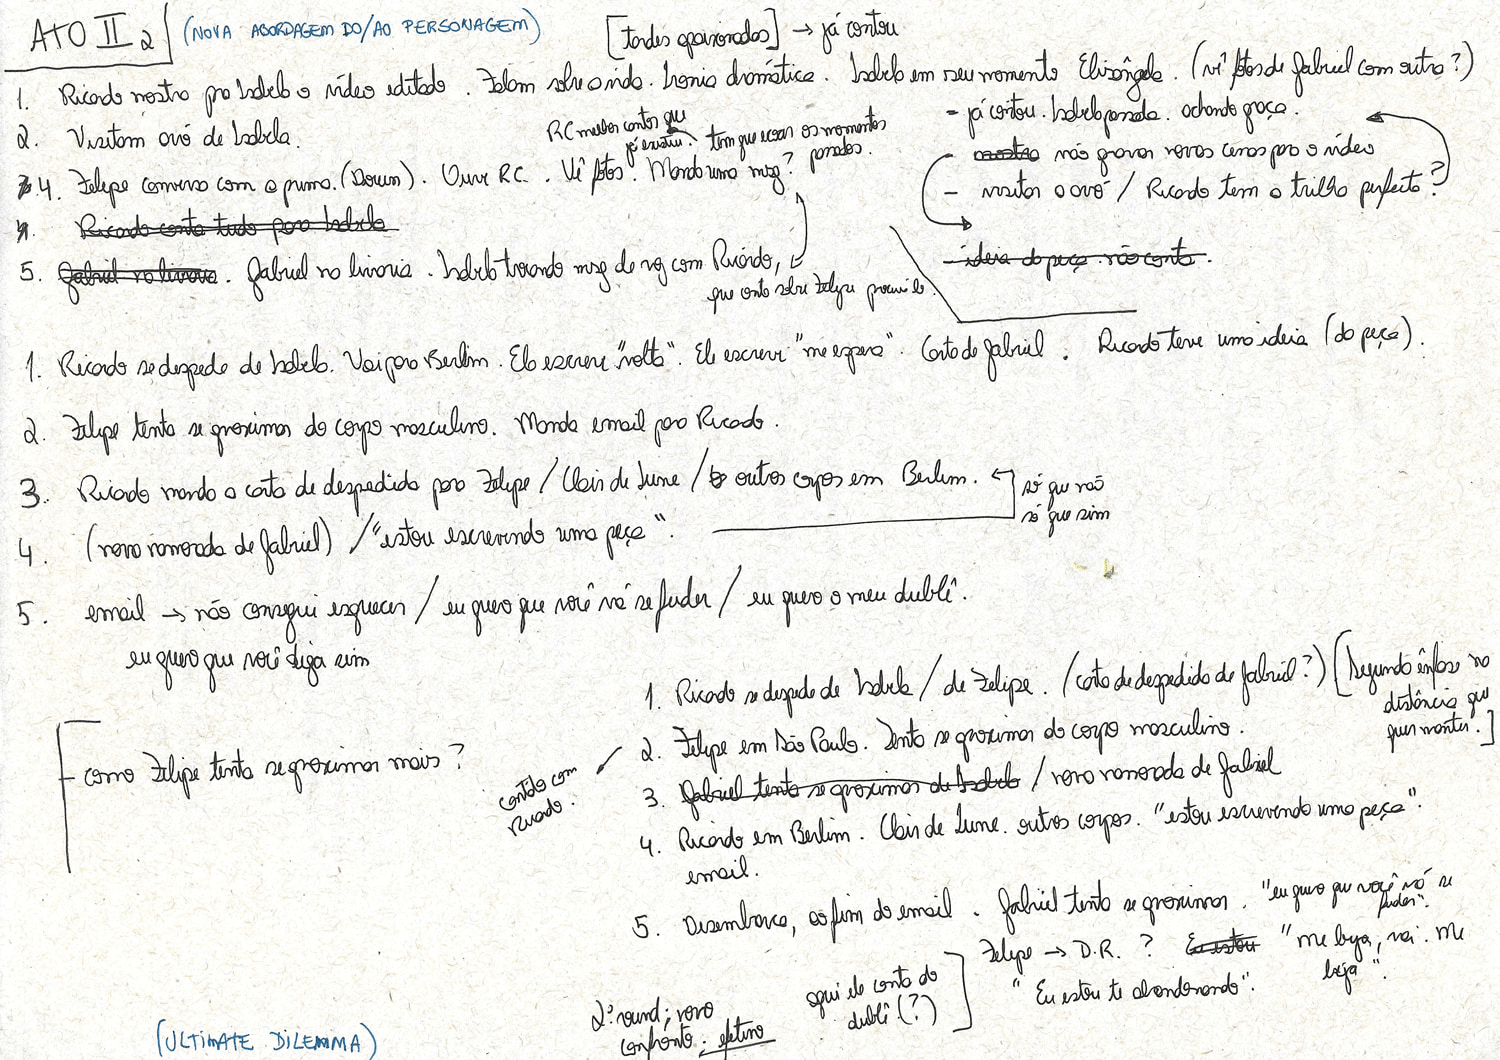 ATO II 2 (NOVA ABORDAGEM DO/AO PERSONAGEM)
[tardes apaixonadas] → já contou
1. Ricardo mostra pra Isabela o vídeo editado. Falam sobre a vida. Ironia dramática. Isabela em seu momento Elizângela. (vê fotos de Gabriel com outra?)
- já contou. Isabela passada. achando graça.
2. Visitam avó de Isabela.
RC melhor contos que já existiu.
tem que ecoar os momentos passados.
- mostra não gravar novas cenas pro o vídeo
4. Felipe conversa com a prima. (Down). Ouve RC. Vê fotos. Manda uma msg?
- visitar a avó / Ricardo tem a trilha perfeita?
4. Ricardo conta tudo para Isabela
- ideia da peça não conta.
5. Gabriel na livraria. Gabriel na livraria. Isabela trocando msg de voz com Ricardo,
que conta sobre Felipe
1. Ricardo se despede de Isabela. Vai para Berlim. Ela escreve "volta". Ele escreve "me espera". Carta de Gabriel. Ricardo teve uma ideia (da peça).
2. Felipe tenta se aproximar do corpo masculino. Manda email para Ricardo.
3. Ricardo manda a carta de despedida para Felipe / Clair de Lune / outros corpos em Berlim.
só que não
só que sim
4. (nova namorada de Gabriel) / "estou escrevendo uma peça".
5. email → não consegui esquecer / eu quero que você vá se fuder / eu quero o meu dublê.
eu quero que você diga sim
1. Ricardo se despede de Isabela / de Felipe. (carta de despedida de Gabriel?) [Segundo ênfase na
distância que
quer manter.]
2. Felipe em São Paulo. Tenta se aproximar do corpo masculino.
- como Felipe tenta se aproximar mais?
contato com
Ricardo.
3. Gabriel tenta se aproximar de Isabela / nova namorada de Gabriel
4. Ricardo em Berlim. Clair de Lune. outros corpos. "estou escrevendo uma peça".
email.
5. Desembarca, ao fim do email. Gabriel tenta se aproximar. "eu quero que você vá se
fuder".
Felipe → D.R. ? Eu estou "me beija, vai. me
beija".
"Eu estou te abandonando".
aqui ele conta do
dublê (?)
2º round; novo
confronto. efetivo
(ULTIMATE DILEMMA)